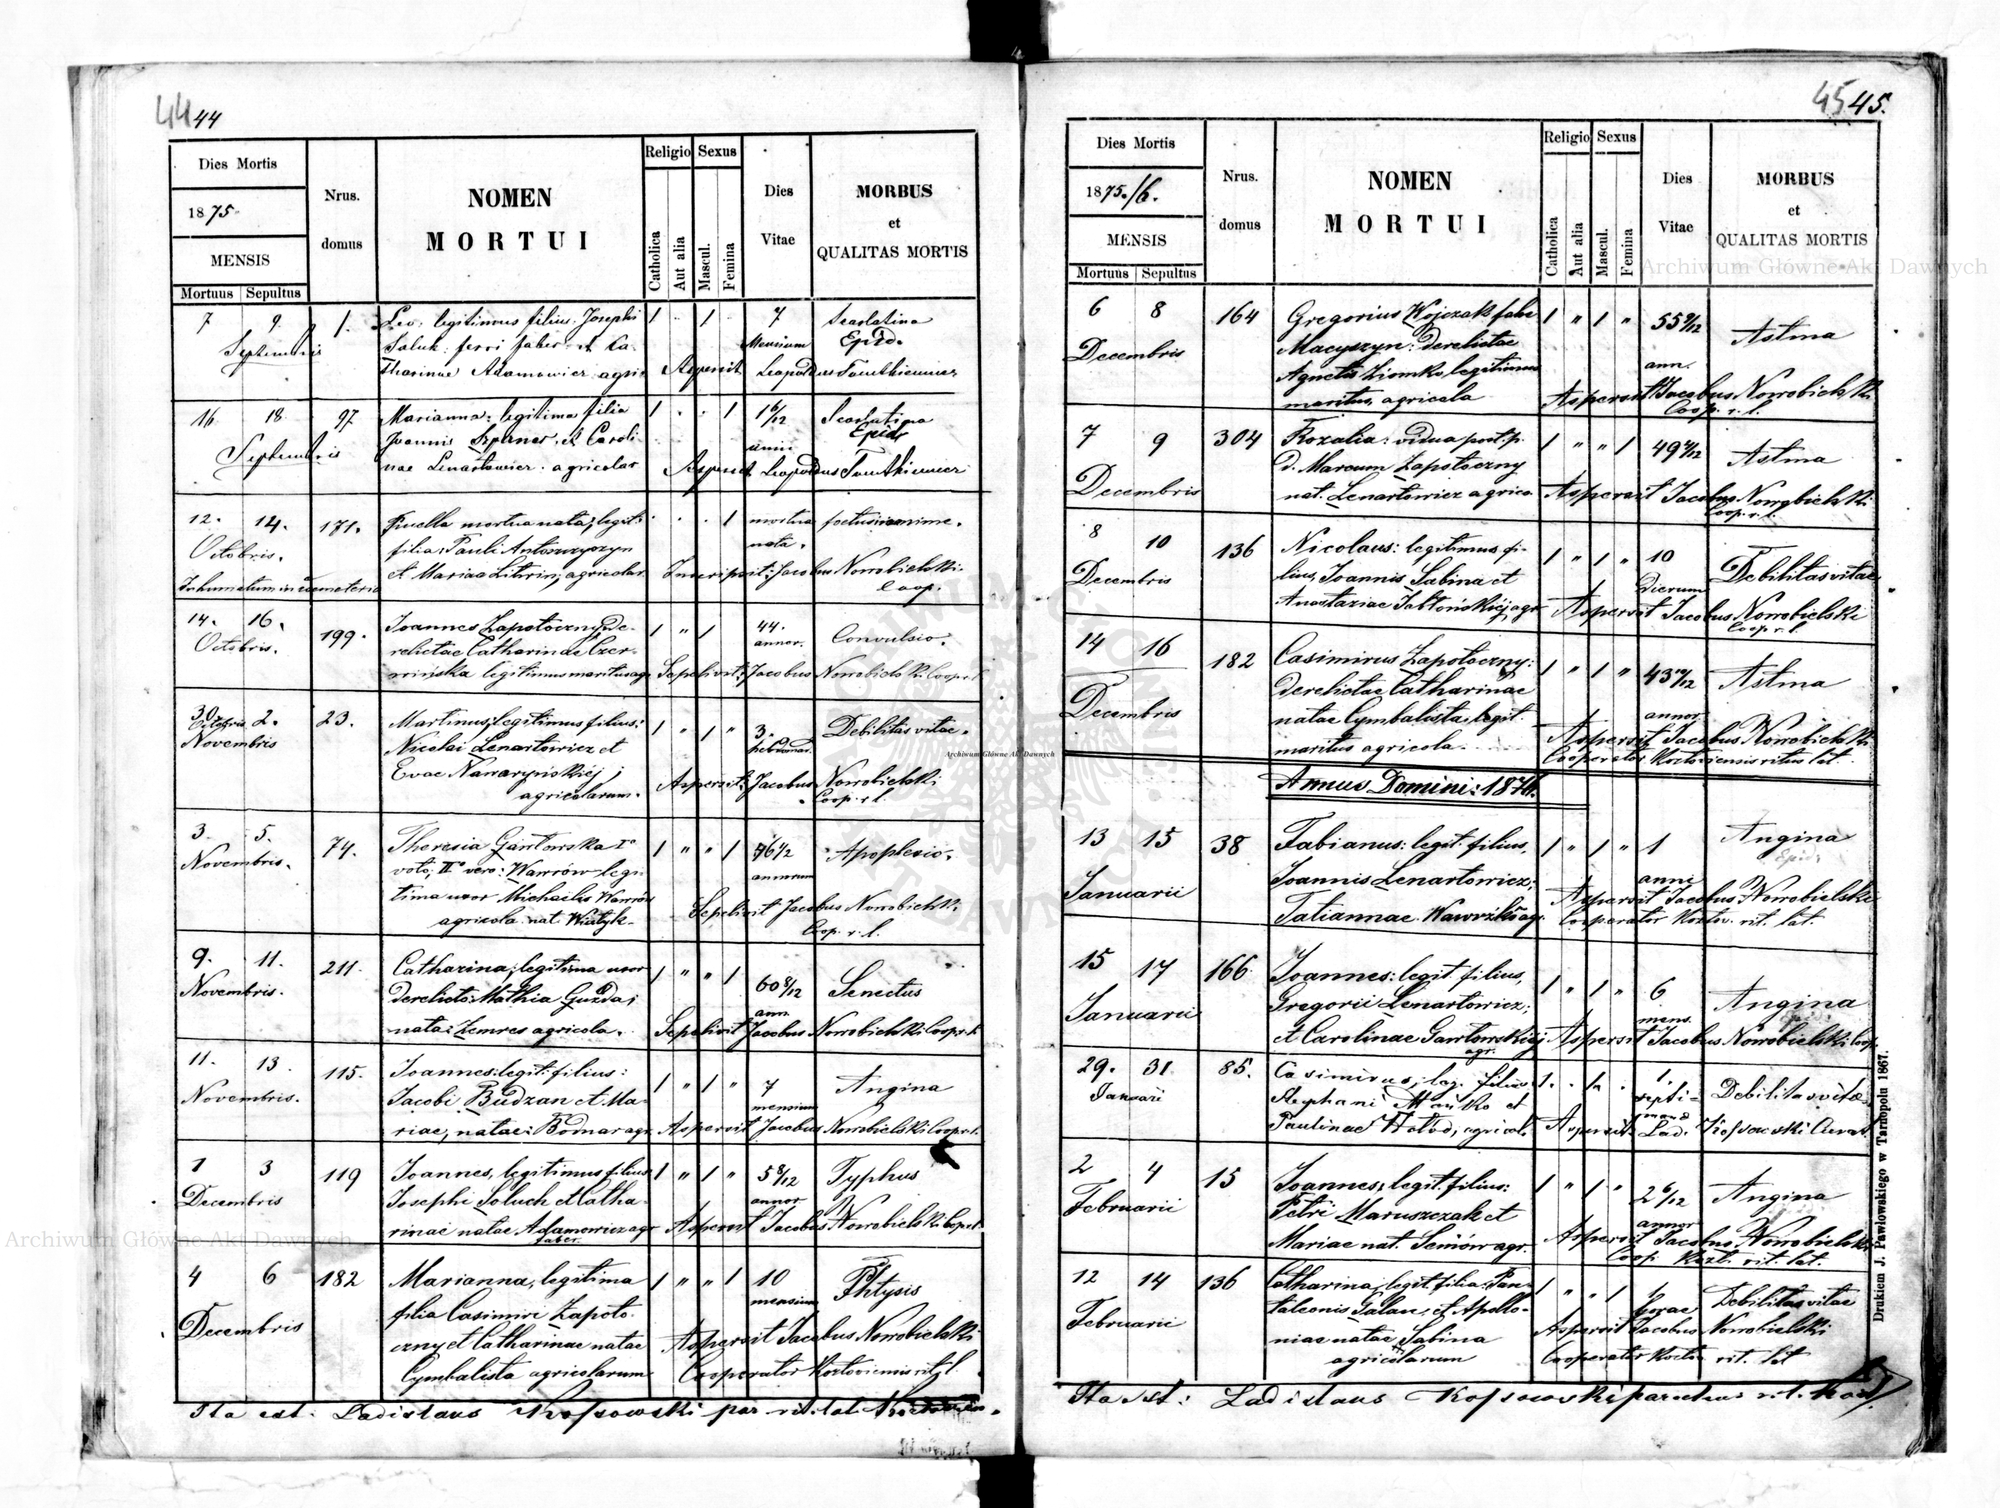 44 44
Dies Mortis
1875
MENSIS
Mortuus Sepultus
Nrus. domus
NOMEN
MORTUI
Religio Sexus
Catholica
Aut alia
Mascul.
Femina
Dies
Vitae
MORBUS
et
QUALITAS MORTIS
7 9 1. Leo: legitimus filius Josephi 1 1 7 Scarlatina
Septembris ferri faber et Ca- Mensium Epid.
tharinae Adamowicz agric. Aspersit Leopoldus
16 18 97 Marianna: legitima filia 1 1 1 6/12 Scarlatina
Septembris Joannis et Caroli anni Epid.
nae Lenartowicz: agricolar Aspersit Leopoldus
12. 14. 171. Puella mortua nata; legit: 1 mortua foetus
Octobris. filia: Pauli nata.
Inhumatum in coemeterio et Mariae agricolar. Inscripsit: Jacobus Nowobielski
Coop.
14. 16. 199. Joannes Zapotoczny de- 1 " 1 44. Convulsio.
Octobris. relictae Catharinae Czer- annor.
wińska legitimus maritus agr. Sepelivit: Jacobus Nowobielski Coop. r. l.
30 Octobris 2. 23. Martinus; legitimus filius: 1 " 1 " 3. Debilitas vitae.
Novembris Nicolai Lenartowicz et hebdomad.
Evae Nawaryńskiéj; Aspersit: Jacobus Nowobielski
agricolarum. Coop. r. l.
3 5. 74. Theresia Gawłowska Iº 1 " " 1 76 1/2 Apoplexio.
Novembris. voto, IIº vero: Wawrów legi- annorum
tima uxor Michaelis Wawrów Sepelivit Jacobus Nowobielski
agricola nat. Wiatyk Coop. r. l.
9. 11. 211. Catharina; legitima uxor 1 " " 1 60 8/12 Senectus
Novembris. derelicto: Mathia Guzda; ann.
nata: Zemres agricola. Sepelivit Jacobus Nowobielski Coop. r. l.
11. 13. 115. Joannes: legit: filius: 1 " 1 " 7 Angina
Novembris. Jacobi Budzan et Ma- mensium
riae, natae: Bodnar agr. Aspersit Jacobus Nowobielski Coop. r. l.
1 3 119 Joannes, legitimus filius 1 " 1 " 5 8/12 Typhus
Decembris Josephi Soluch et Catha- annor
rinae natae Adamowicz agr. Aspersit Jacobus Nowobielski Coop. r. l.
faber
4 6 182 Marianna, legitima 1 " " 1 10 Phtysis
Decembris filia Casimiri Zapoto- mensium
czny et Catharinae natae Aspersit Jacobus Nowobielski
Cymbalista agricolarum Cooperator Kozłoviensis rit. l.
Ita est: Ladislaus Kossowski par. rit. lat.
45 45.
Dies Mortis
1875./6.
MENSIS
Mortuus Sepultus
Nrus. domus
NOMEN
MORTUI
Religio Sexus
Catholica
Aut alia
Mascul.
Femina
Dies
Vitae
MORBUS
et
QUALITAS MORTIS
6 8 164 Gregorius Wojczak false 1 " 1 " 55 9/12 Astma
Decembris Macyszyn: derelictae ann.
Agnetis Ziomko legitimus Aspersit Jacobus Nowobielski
maritus, agricola Coop. r. l.
7 9 304 Rozalia: vidua post. p. 1 " " 1 Astma
Decembris d. Marcum Zapotoczny
nat. Lenartowicz agrico. Aspersit Jacobus Nowobielski
Coop. r. l.
8 10 136 Nicolaus: legitimus fi- 1 " 1 " 10 Debilitas vitae
Decembris lius, Joannis Sabina et dierum
Anastaziae Jabłońskiéj agr. Aspersit Jacobus Nowobielski
Coop. r. l.
14 16 182 Casimirus Zapotoczny: 1 " 1 " Astma
Decembris derelictae Catharinae annor.
natae Cymbalista; legit. Aspersit Jacobus Nowobielski
maritus agricola. Cooperator Kozłoviensis ritus lat.
Annus Domini: 1876.
13 15 38 Fabianus: legit. filius, 1 " 1 " 1 Angina
Januarii Joannis Lenartowicz; anni Epid.
Tatiannae Wawrżków agr. Aspersit Jacobus Nowobielski
Cooperator Kozłow. rit. lat.
15 17 166 Joannes: legit. filius, 1 " 1 " 6 Angina
Januarii Gregorii Lenartowicz; mens.
et Carolinae Gawłowskiéj Aspersit Jacobus Nowobielski Coop.
agr.
29. 31. 85. Casimirus; leg. filius 1. 1. 1. Debilitas vitae
Januarii Stephani Mańko et septi-
Paulinae Hołod, agricol. Aspersit: Lad. Kossowski Curat.
2 4 15 Joannes; legit. filius: 1 " 1 " 2 6/12 Angina
Februarii Petri Maruszczak et annor
Mariae nat. Semów agr. Aspersit Jacobus Nowobielski
Coop. Kozł. rit. lat.
12 14 136 Catharina; legit. filia: Pan- 1 " " 1 1 Debilitas vitae
Februarii taleonis Galan, et Apollo- horae
niae natae Sabina Aspersit Jacobus Nowobielski
agricolarum Cooperator Kozłov. rit. lat
Ita est: Ladislaus Kossowski parochus rit. lat.
Drukiem J. Pawłowskiego w Tarnopolu 1867.
Archiwum Główne Akt Dawnych
Archiwum Główne Akt Dawnych
Archiwum Główne Akt Dawnych
ARCHIWUM GŁÓWNE AKT DAWNYCH